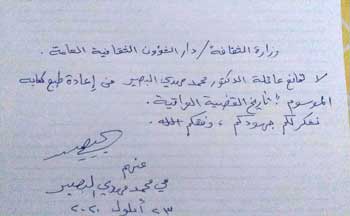 وزارة الثقافة / دار الشؤون الثقافية العامة .
لا تمانع عائلة الدكتور محمد مهدي البصير من إعادة طبع كتابه
الموسوم " تاريخ القضية العراقية .
نشكر لكم جهودكم ، وفقكم الله .
البصير
عنهم
محمد مهدي البصير
٢٣ أيلول ٢٠٢٠